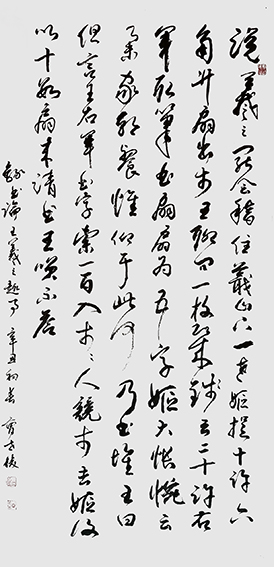 説羲之罷會稽住蕺山下一老嫗捉十許六
角竹扇出市王聊問一枚幾錢云二十許右
軍取筆書扇扇為五字嫗大悵惋云
舉家朝餐惟仰于此何乃書壞王曰
但言王右軍書字索一百入市市人競市去嫗復
以十數扇来請書王笑不答
書論王羲之趣事 辛丑初春